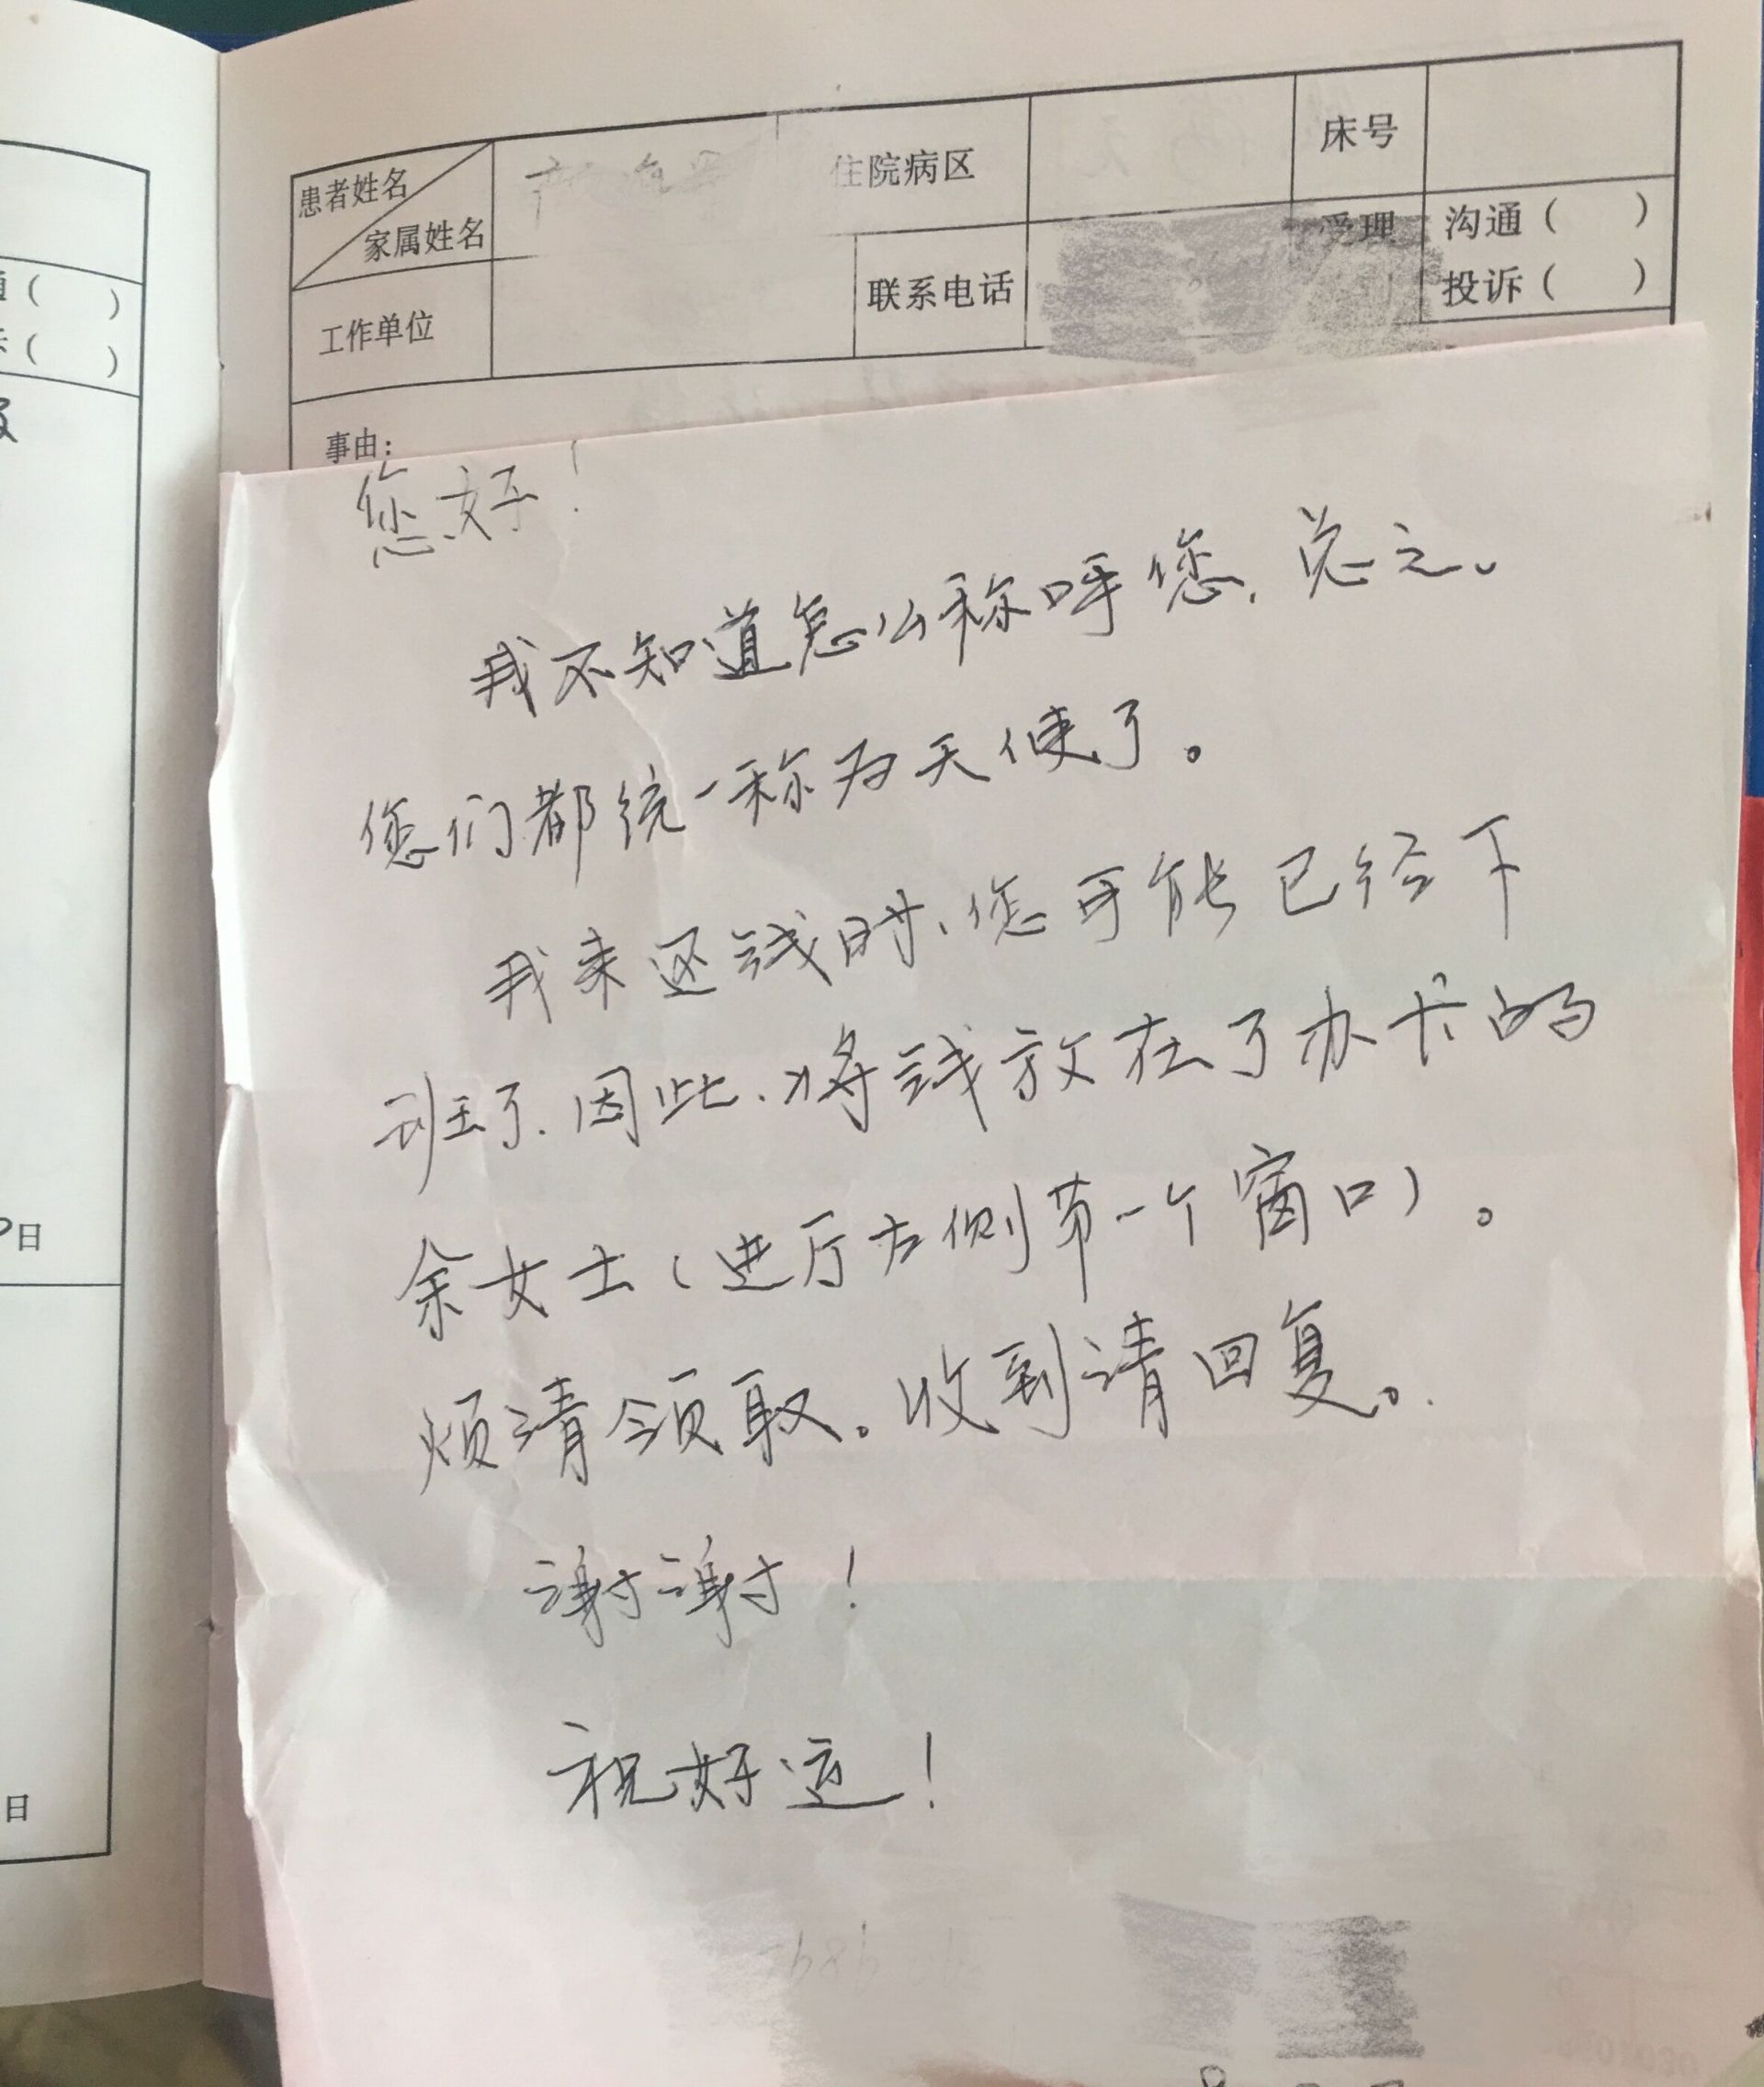 患者姓名
家属姓名
住院病区
床号
工作单位
联系电话
受理
沟通（ ）
投诉（ ）
事由：
您好！
我不知道怎么称呼您，总之。
您们都统一称为天使了。
我来还钱时，您可能已经下
班了，因此，将钱放在了办卡的
余女士（进厅左侧第一个窗口）。
烦请领取。收到请回复。
谢谢！
祝好运！
日
日